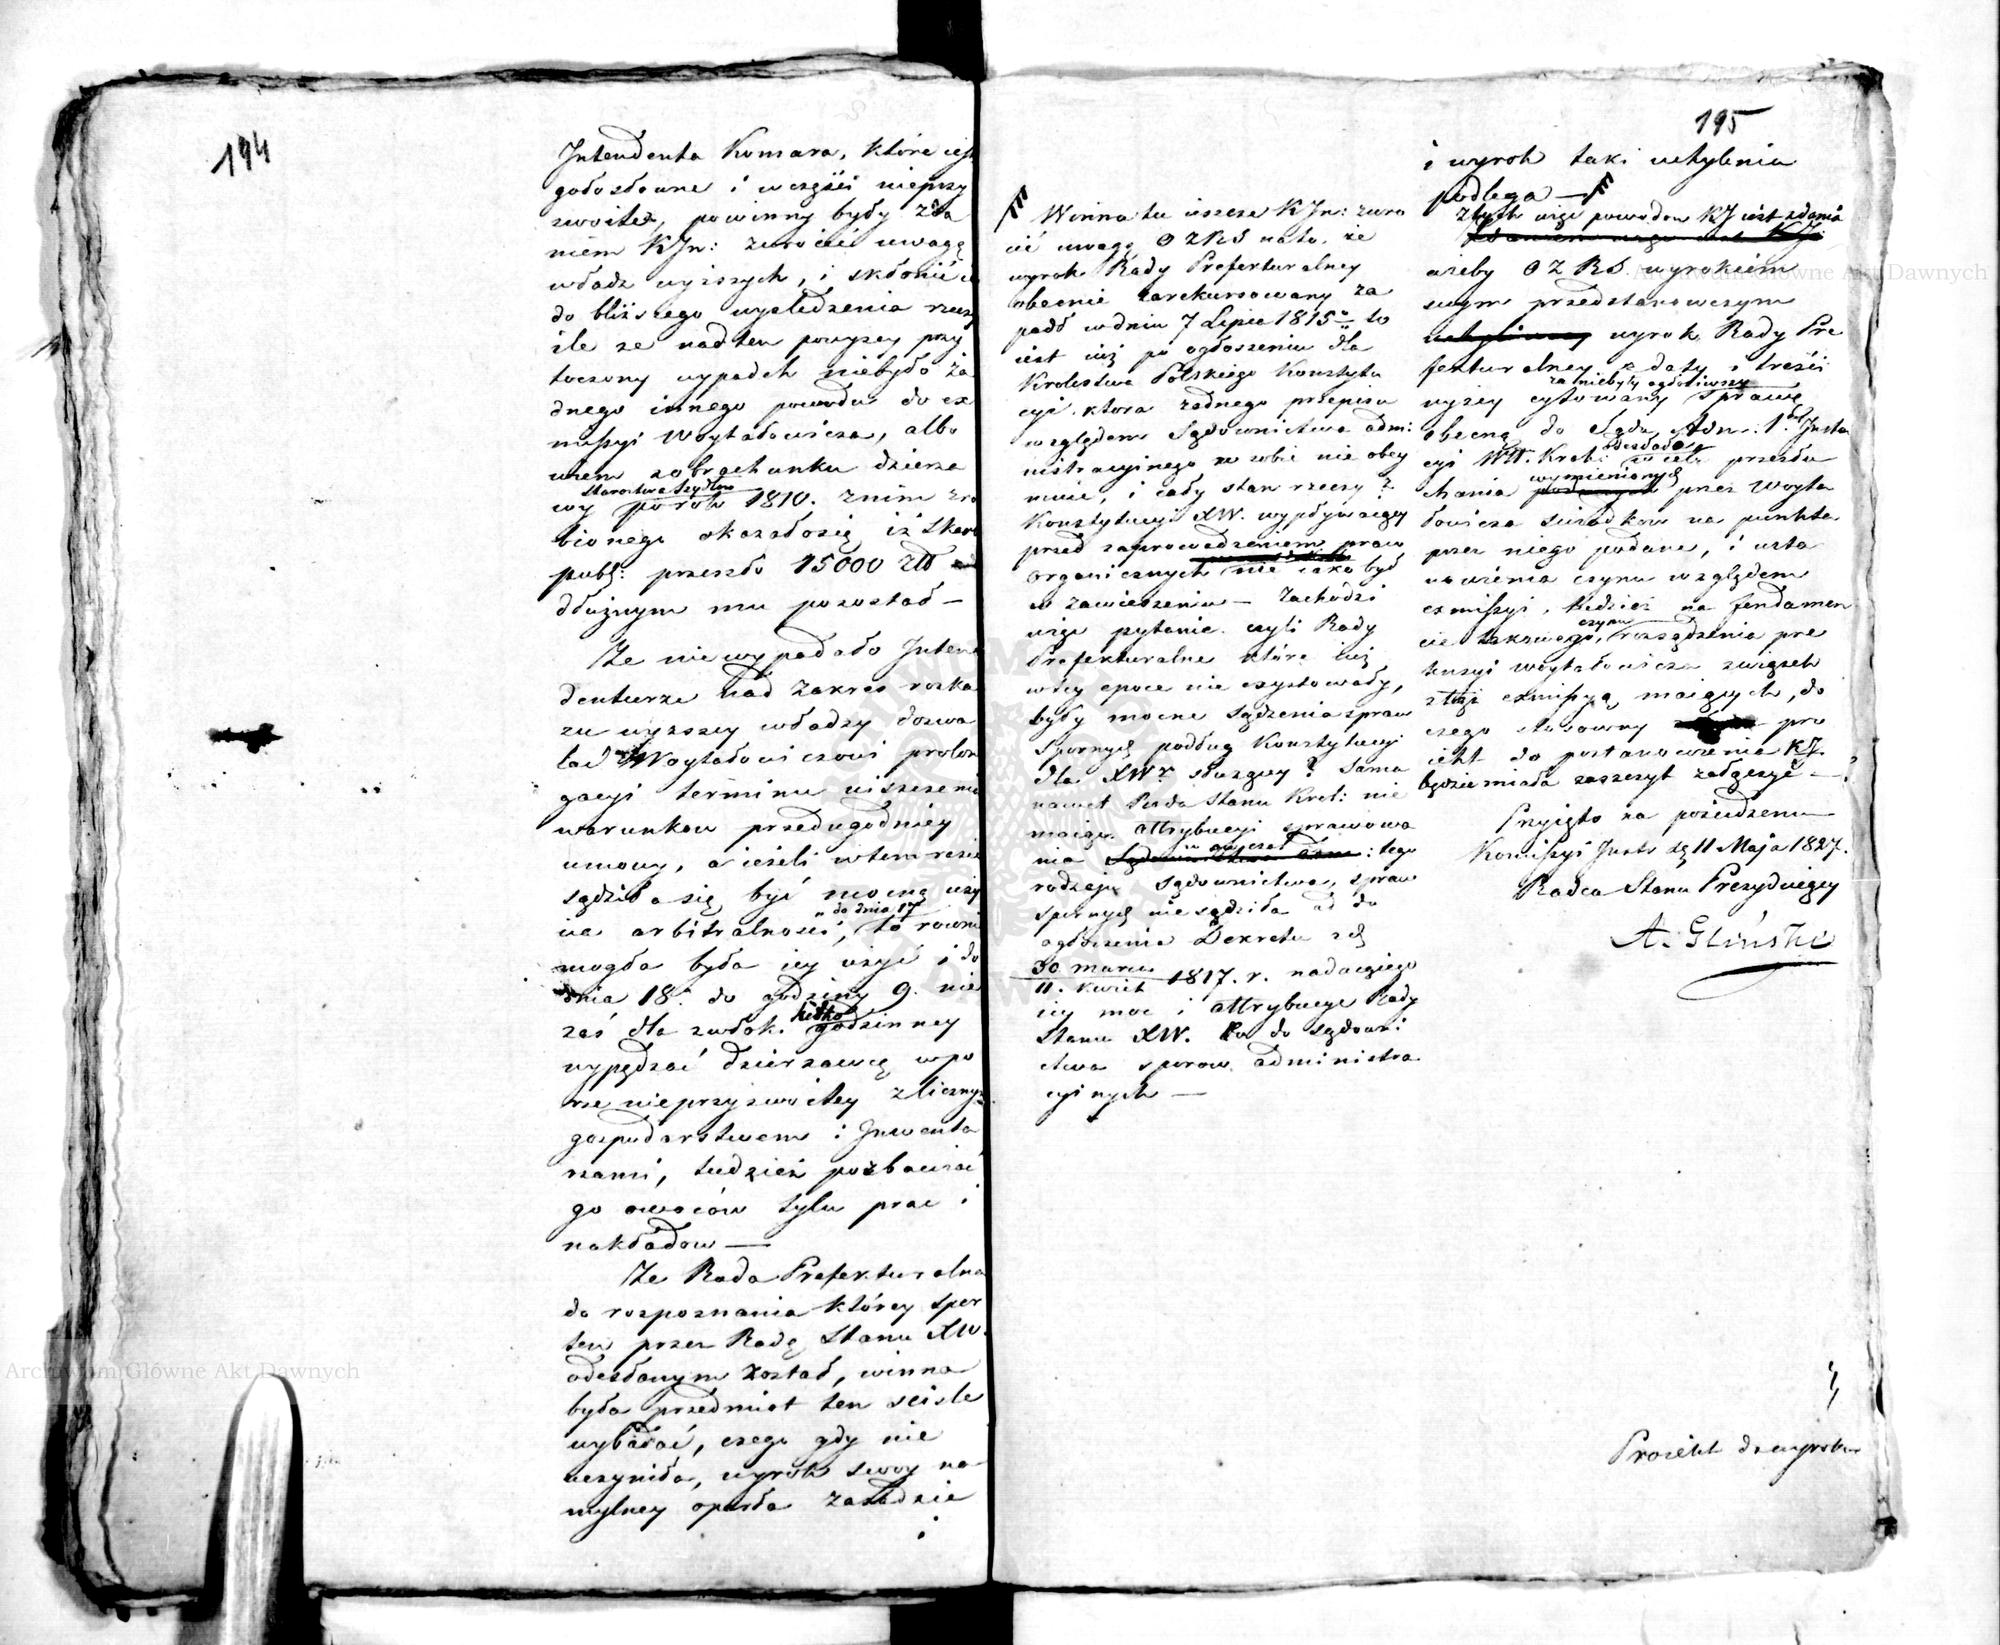 194
Intendenta Komara, które iest
gołosłowne i w części nieprzy
zwoite, powinny były zda
niem KJn: zwrócić uwagę
władz wyższych, i skłonić ie
do bliższego wyśledzenia rzeczy
ile że nad ten powyżey przy
toczony wypadek niebyło ża
dnego innego powodu do ex
missyi Woytałowicza, albo
wiem z obrachunku dzierża
Starostwa
wy 1810. z nim zro
bionego okazało się iż Skarb
publ: przeszło 15000 Złł
dłużnym mu pozostał —
Że nie wypadało Inten
denturze nad zakres rozka
zu wyższey władzy dozwa
lać Woytałowiczowi prolon
gacyi terminu uiszczenia
warunków przedugodniey
umowy, a ieżeli w tem razie
sądziła się być mocną uży
„ do dnia 17
cia arbitralności, to równie
mogła była iey użyć i do
dnia 18. do godziny 9. nie
kilko
zaś dla zwłoki godzinney
wypędzać dzierżawcę w po
rze nieprzyzwoitey z licznym
gospodarstwem i Inwenta
rzami, tudzież pozbawiać
go owoców tylu prac i
nakładow —
Że Rada Prefekturalna
do rozpoznania którey spór
ten przez Radę Stanu XW.
odesłanym został, winna
była przedmiot ten ściśle
wybadać, czego gdy nie
uczyniła, wyrok swoy na
mylney oparła zasadzie
i
195
Winna tu ieszcze KJn: zwró
cić uwagę OZRS na to, że
wyrok Rady Prefekturalney
obecnie zarekursowany za
padł w dniu 7 Lipca 1815 to
iest iuż po ogłoszeniu dla
Krolestwa Polskiego Konstytu
cyi, ktora żadnego przepisu
względem Sądownictwa adm:
nistracyinego w sobie nie obey
muie, i cały stan rzeczy z
Konstytucyi XW. wypływaiący
przed zaprowadzeniem praw
organicznych nie iako był
w zawieszeniu — Zachodzi
więc pytanie. czyli Rady
Prefekturalne które iuż
w tey epoce nie exystowały,
były mocne sądzenia spraw
spornych podług Konstytucyi
dla XWr służącey? Sama
nawet Rada Stanu Krol: nie
maiąc attrybucyi sprawowa
nia : tego
rodzaju sądownictwa, spraw
spornych nie sądziła aż do
ogłoszenia Dekretu z d
30 marca
11. kwiet 1817. r. nadaiącego
iey moc i attrybucye Rady
Stanu XW. co do sądowni
ctwa sporow administra
cyinych —
i wyrok taki uchyleniu
podlega —
Z tych więc powodow KJ iest zdania
ażeby OZRS. wyrokiem
swym przedstanowczym
wyrok Rady Pre
fekturalney z daty i treści
za niebyły ogłosiwszy
wyżey cytowany sprawę
obecną do Sądu Adm: 1. Insta
odesłała
cyi WW. Krak: w celu przesłu
wymienionych
chania przez Woyta
łowicza świadkow na punkta
przez niego podane, i usta
nowienia czynu względem
exmissyi, tudzież na fundamen
czynu
cie takowego, rozsądzenia pre
tensyi Woytałowicza związek
z tąż exmissyą maiących, do
czego stosowny pro
iekt do postanowienia KJ.
będzie miała zaszczyt załączyć —
Przyięto na posiedzeniu
Komissyi Instr dą 11 Maja 1827.
Radca Stanu Prezyduiący
A. Gliński
Proiekt do wyroku
Archiwum Główne Akt Dawnych
Archiwum Główne Akt Dawnych